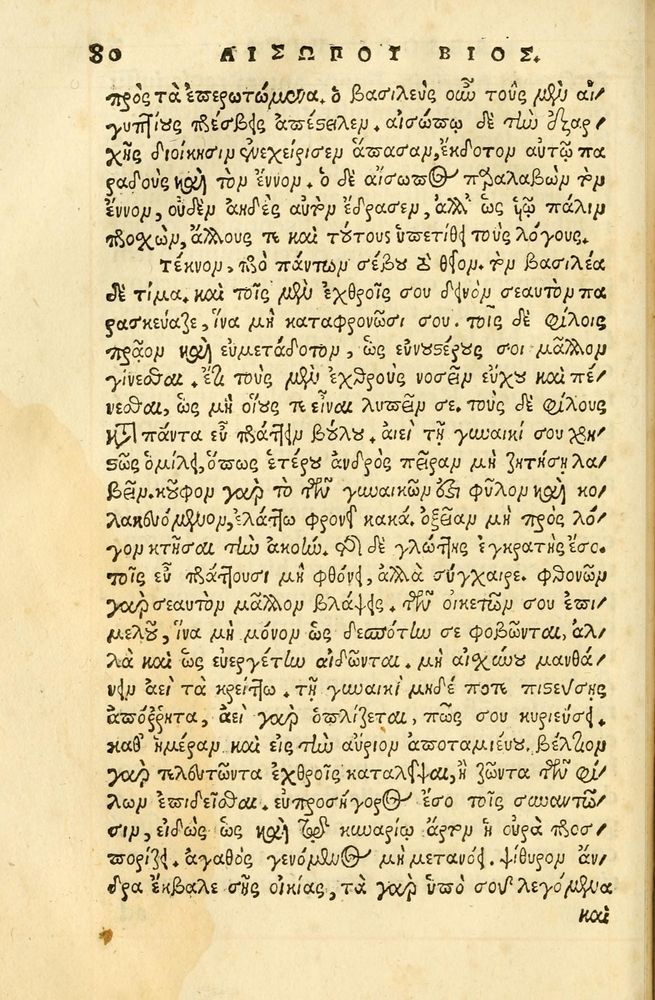 80 ΑΙΣΩΠΟΥ ΒΙΟΣ.
πρὸς τὰ ἐπερωτώμενα. ὁ βασιλεὺς οὖν τοὺς μὲν αἰ/
γυπτίους πρέσβεις ἀπέστειλεν. αἰσώπῳ δὲ τὴν ἐξαρ/
χῆς διοίκησιν ἐνεχείρισεν ἅπασαν, ἔκδοτον αὐτῷ πα
ραδοὺς καὶ τὸν ἔννον. ὁ δὲ αἴσωπος παραλαβὼν τὸν
ἔννον, οὐδὲν ἀηδὲς αὐτὸν ἔδρασεν, ἀλλ' ὡς υἱῷ πάλιν
προσχὼν, ἄλλους τε καὶ τούτους ὑπετίθει τοὺς λόγους.
Τέκνον, πρὸ πάντων σέβου τὸ θεῖον. τὸν βασιλέα
δὲ τίμα. καὶ τοῖς μὲν ἐχθροῖς σου δεινὸν σεαυτὸν πα
ρασκεύαζε, ἵνα μὴ καταφρονῶσι σου. τοῖς δὲ φίλοις
πρᾶον καὶ εὐμετάδοτον, ὡς εὐνουστέρους σοι μᾶλλον
γίνεσθαι. ἔτι τοὺς μὲν ἐχθροὺς νοσεῖν εὔχου καὶ πέ/
νεσθαι, ὡς μὴ οἵους τε εἶναι λυπεῖν σε. τοὺς δὲ φίλους
κατὰ πάντα εὖ πράττειν βούλου. αἰεὶ τῇ γυναικί σου χρη/
στῶς ὁμίλει, ὅπως ἑτέρου ἀνδρὸς πεῖραν μὴ ζητήσῃ λα/
βεῖν. κοῦφον γὰρ τὸ τῶν γυναικῶν ἐστι φῦλον καὶ κο/
λακευόμενον, ἐλάττω φρονεῖ κακά. ὀξεῖαν μὴ πρὸς λό/
γον κτῆσαι τὴν ἀκοήν. τῆς δὲ γλώττης ἐγκρατὴς ἔσο.
τοῖς εὖ πράττουσι μὴ φθόνει, ἀλλὰ σύγχαιρε. φθονῶν
γὰρ σεαυτὸν μᾶλλον βλάψεις. τῶν οἰκετῶν σου ἐπι/
μελοῦ, ἵνα μὴ μόνον ὡς δεσπότην σε φοβῶνται, ἀλ/
λὰ καὶ ὡς εὐεργέτην αἰδῶνται. μὴ αἰσχύνου μανθά/
νειν ἀεὶ τὰ κρείττω. τῇ γυναικὶ μηδέ ποτε πιστεύσῃς
ἀπόῤῥητα, ἀεὶ γὰρ ὁπλίζεται, πῶς σου κυριεύσει.
καθ' ἡμέραν καὶ εἰς τὴν αὔριον ἀποταμιεύου. βέλτιον
γὰρ τελευτῶντα ἐχθροῖς καταλεῖψαι, ἢ ζῶντα τῶν φί/
λων ἐπιδεῖσθαι. εὐπροσήγορος ἔσο τοῖς συναντῶ/
σιν, εἰδὼς ὡς καὶ τῷ κυναρίῳ ἄρτον ἡ οὐρὰ προσ/
πορίζει. ἀγαθὸς γενόμενος μὴ μετανόει. ψίθυρον ἄν/
δρα ἔκβαλε σῆς οἰκίας, τὰ γὰρ ὑπὸ σοῦ λεγόμενα
καὶ